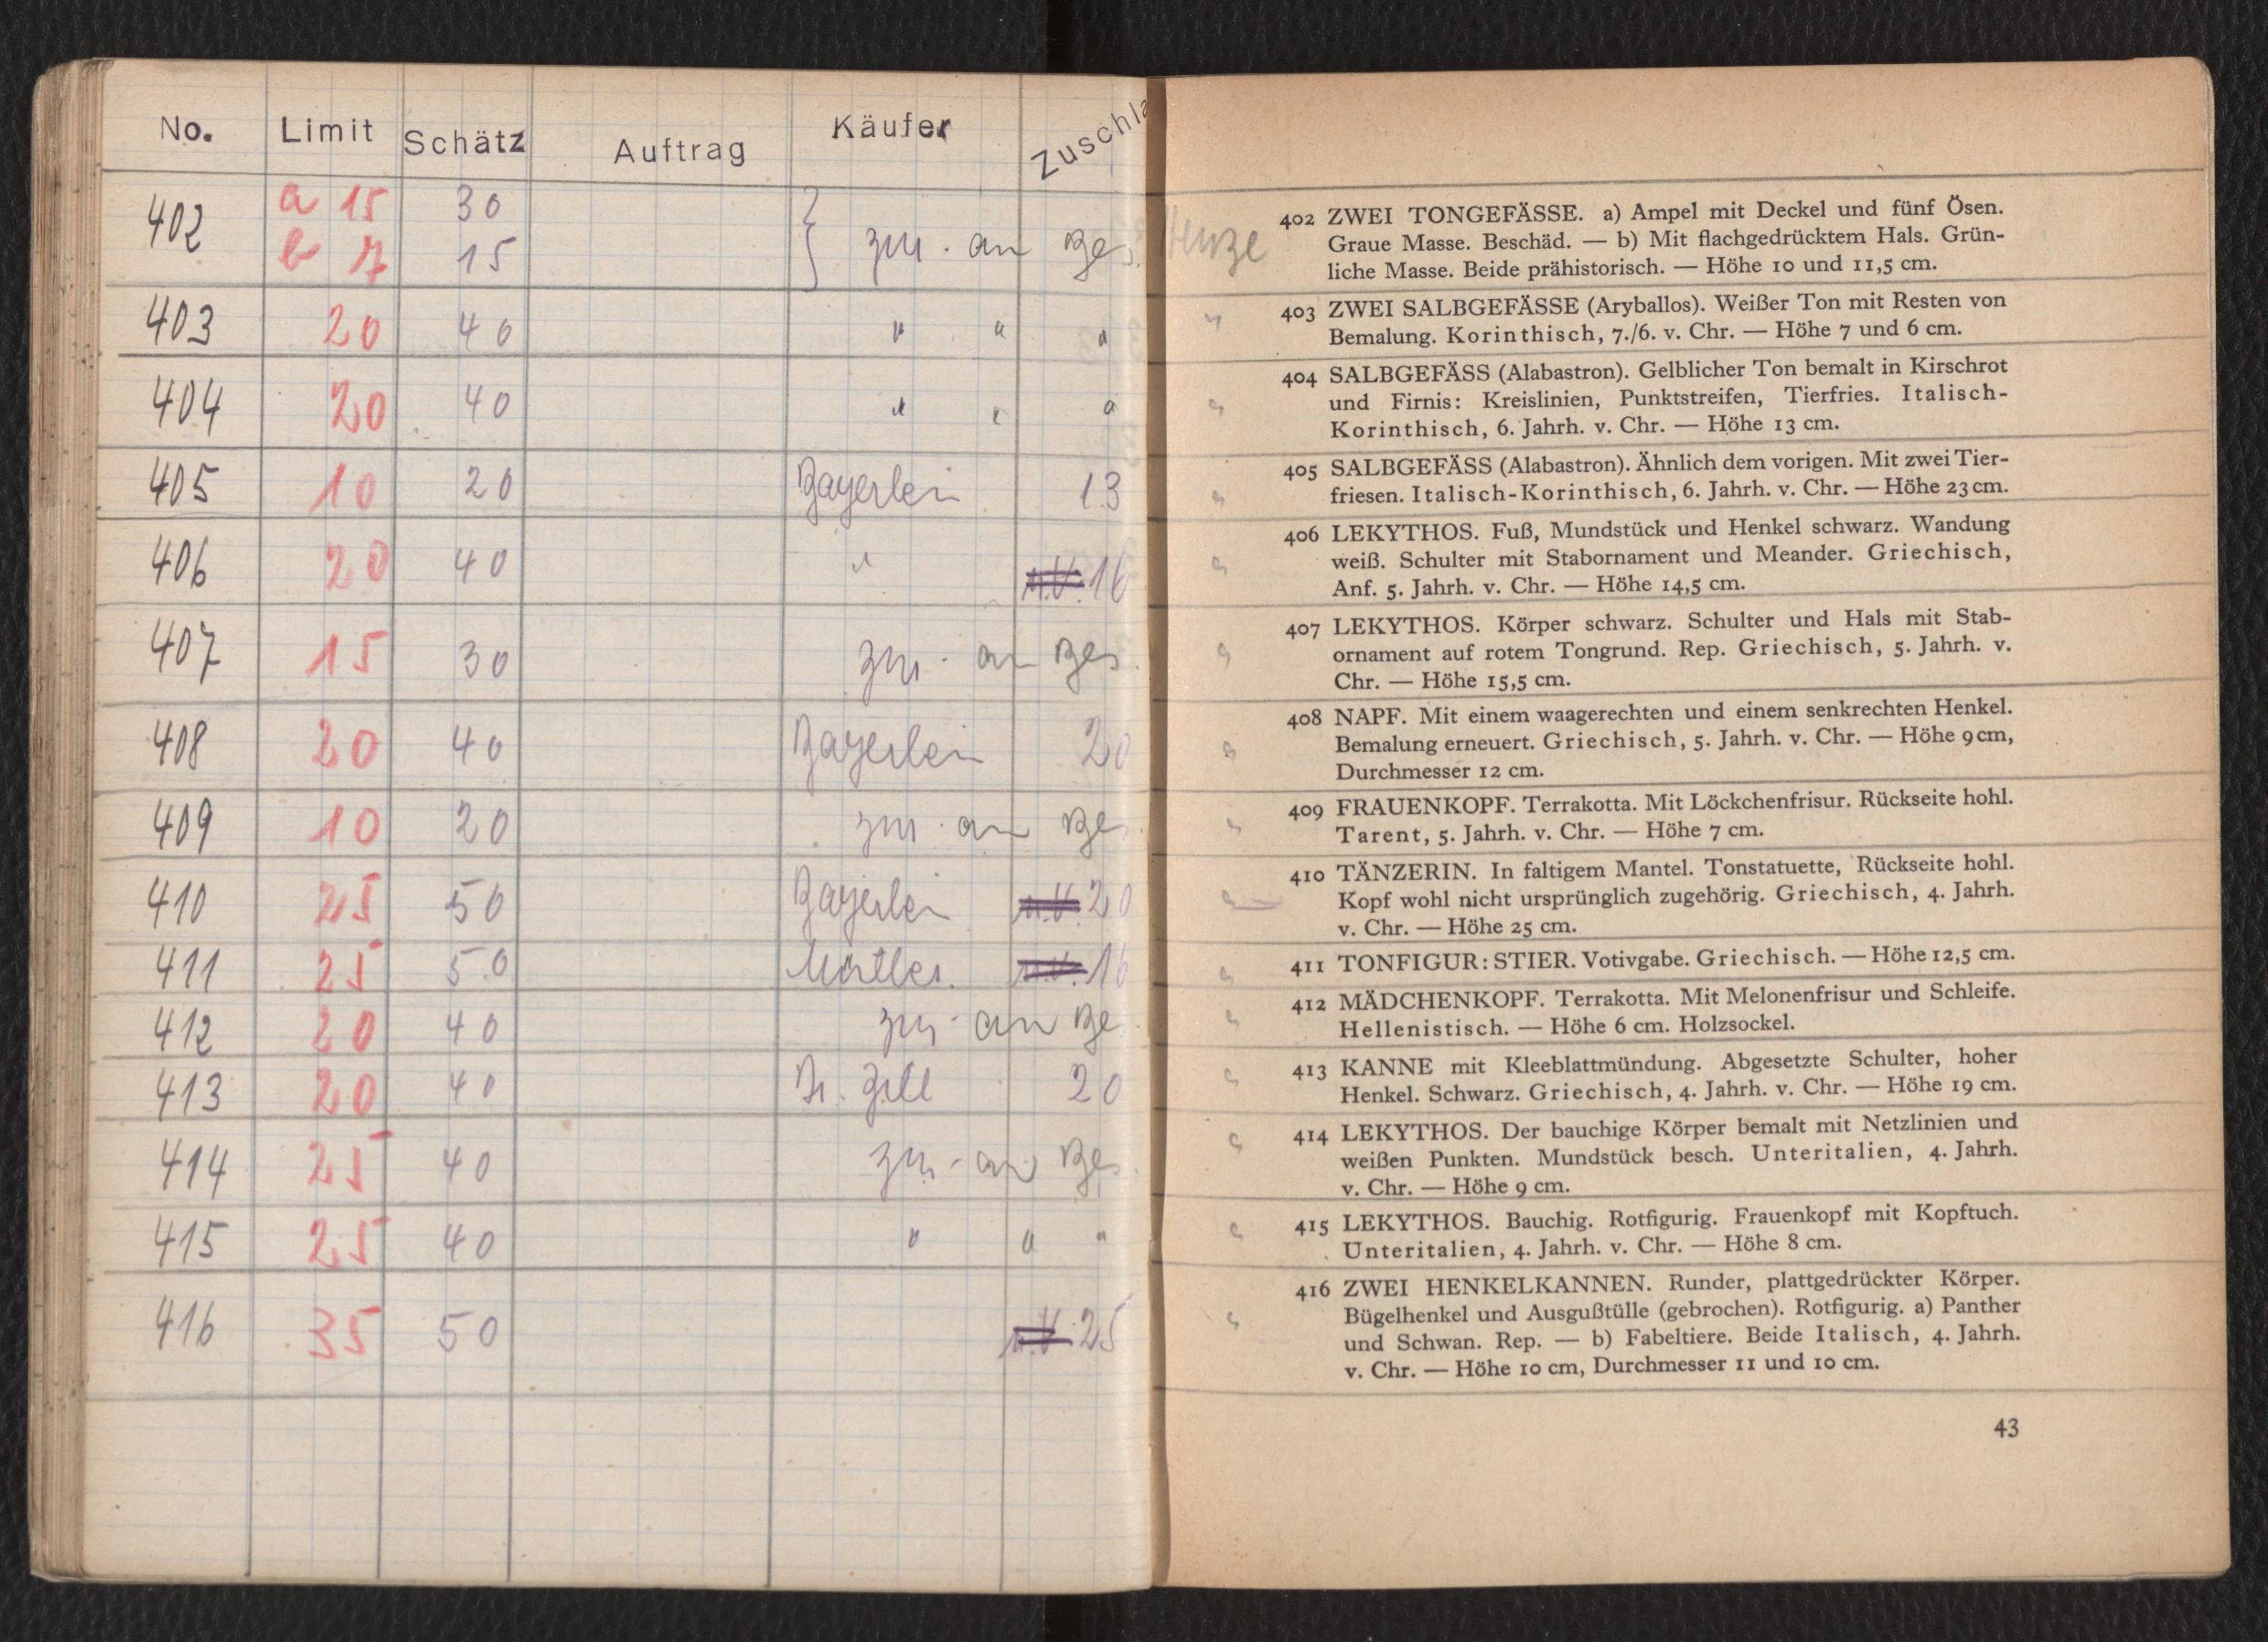 No. Limit Schätz Auftrag Käufer Zuschla
402 a 15 30
b 7 15 zur. an Bes.
403 20 40 " " "
404 20 40 " " "
405 10 20 Bayerlein 13
406 20 40 " u.V. 16
407 15 30 zur. an Bes.
408 20 40 Bayerlein 20
409 10 20 zur. an Be
410 25 50 Bayerlein u.V. 20
411 25 50 u.V. 16
412 20 40 zur. an Be
413 20 40 20
414 25 40 zur. an Bes.
415 25 40 " " "
416 35 50 u.V. 25
402 ZWEI TONGEFÄSSE. a) Ampel mit Deckel und fünf Ösen.
Graue Masse. Beschäd. — b) Mit flachgedrücktem Hals. Grün-
liche Masse. Beide prähistorisch. — Höhe 10 und 11,5 cm.
403 ZWEI SALBGEFÄSSE (Aryballos). Weißer Ton mit Resten von
Bemalung. Korinthisch, 7./6. v. Chr. — Höhe 7 und 6 cm.
404 SALBGEFÄSS (Alabastron). Gelblicher Ton bemalt in Kirschrot
und Firnis: Kreislinien, Punktstreifen, Tierfries. Italisch-
Korinthisch, 6. Jahrh. v. Chr. — Höhe 13 cm.
405 SALBGEFÄSS (Alabastron). Ähnlich dem vorigen. Mit zwei Tier-
friesen. Italisch-Korinthisch, 6. Jahrh. v. Chr. — Höhe 23 cm.
406 LEKYTHOS. Fuß, Mundstück und Henkel schwarz. Wandung
weiß. Schulter mit Stabornament und Meander. Griechisch,
Anf. 5. Jahrh. v. Chr. — Höhe 14,5 cm.
407 LEKYTHOS. Körper schwarz. Schulter und Hals mit Stab-
ornament auf rotem Tongrund. Rep. Griechisch, 5. Jahrh. v.
Chr. — Höhe 15,5 cm.
408 NAPF. Mit einem waagerechten und einem senkrechten Henkel.
Bemalung erneuert. Griechisch, 5. Jahrh. v. Chr. — Höhe 9 cm,
Durchmesser 12 cm.
409 FRAUENKOPF. Terrakotta. Mit Löckchenfrisur. Rückseite hohl.
Tarent, 5. Jahrh. v. Chr. — Höhe 7 cm.
410 TÄNZERIN. In faltigem Mantel. Tonstatuette, Rückseite hohl.
Kopf wohl nicht ursprünglich zugehörig. Griechisch, 4. Jahrh.
v. Chr. — Höhe 25 cm.
411 TONFIGUR: STIER. Votivgabe. Griechisch. — Höhe 12,5 cm.
412 MÄDCHENKOPF. Terrakotta. Mit Melonenfrisur und Schleife.
Hellenistisch. — Höhe 6 cm. Holzsockel.
413 KANNE mit Kleeblattmündung. Abgesetzte Schulter, hoher
Henkel. Schwarz. Griechisch, 4. Jahrh. v. Chr. — Höhe 19 cm.
414 LEKYTHOS. Der bauchige Körper bemalt mit Netzlinien und
weißen Punkten. Mundstück besch. Unteritalien, 4. Jahrh.
v. Chr. — Höhe 9 cm.
415 LEKYTHOS. Bauchig. Rotfigurig. Frauenkopf mit Kopftuch.
Unteritalien, 4. Jahrh. v. Chr. — Höhe 8 cm.
416 ZWEI HENKELKANNEN. Runder, plattgedrückter Körper.
Bügelhenkel und Ausgußtülle (gebrochen). Rotfigurig. a) Panther
und Schwan. Rep. — b) Fabeltiere. Beide Italisch, 4. Jahrh.
v. Chr. — Höhe 10 cm, Durchmesser 11 und 10 cm.
43